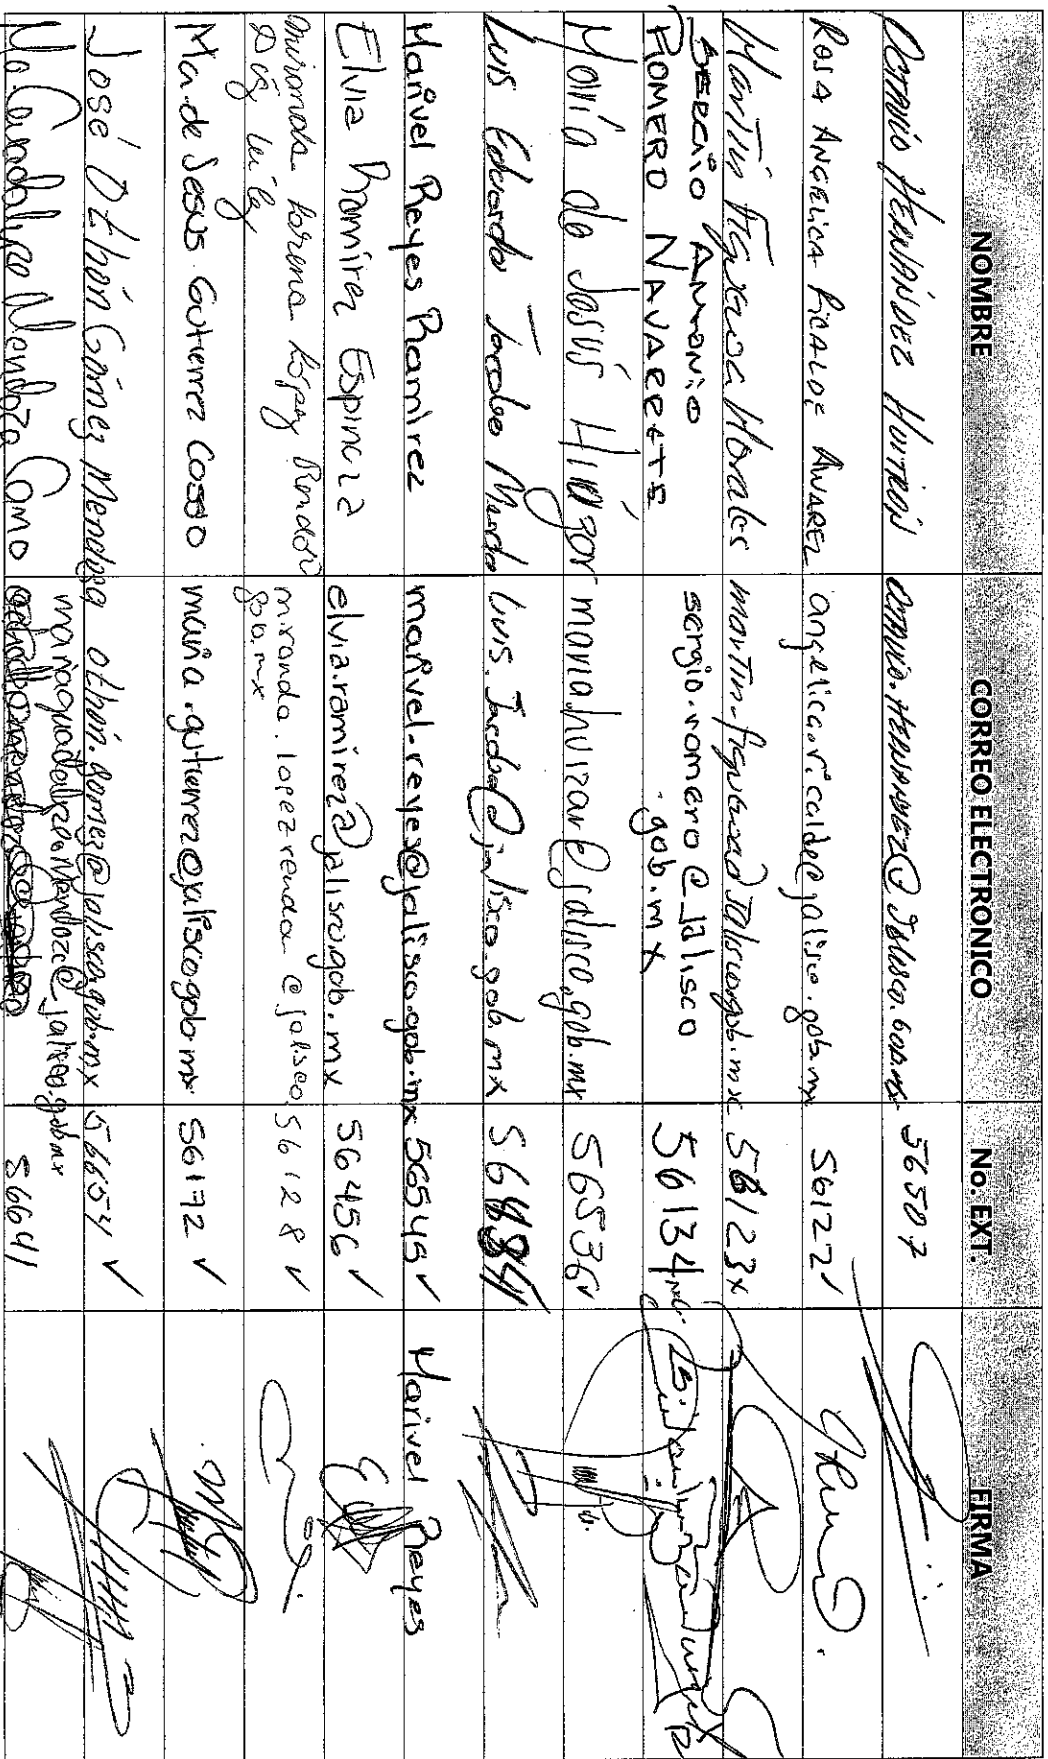 NOMBRE CORREO ELECTRONICO No. EXT. FIRMA
HERNÁNDEZ HUITRÓN 56507
ROSA ANGELICA RICALDE ALVAREZ angelica.ricalde@jalisco.gob.mx 56122 ✓
Martín Figueroa Morales martin.figueroa@jalisco.gob.mx 56123 x
SERGIO ANTONIO
ROMERO NAVARRETE sergio.romero@jalisco
.gob.mx 56134
María de Jesús Huízar maria.huizar@jalisco.gob.mx 56536 ✓
Luis Eduardo Jacobo luis.Jacobo@jalisco.gob.mx
Marivel Reyes Ramirez marivel.reyes@jalisco.gob.mx 56545 ✓ Marivel Reyes
Elvia Ramirez Espinoza elvia.ramirez@jalisco.gob.mx 56456 ✓
Miranda Lorena López Rendón
miranda.lopezrendon@jalisco. 56128 ✓
gob.mx
Ma. de Jesus Gutierrez Cosso maria.gutierrez@jalisco.gob.mx 56172 ✓
José Othón Gómez Mendoza othon.gomez@jalisco.gob.mx 56654 ✓
Ma. Guadalupe Mendoza mariaguadalupe.Mendoza@jalisco.gob.mx 56641